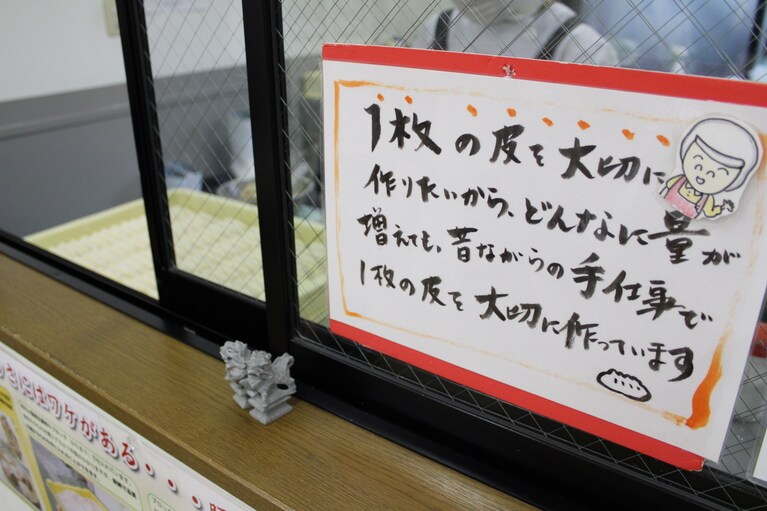 1枚の皮を大切に
作りたいから、どんなに量が
増えても、昔ながらの手仕事で
1枚の皮を大切に作っています
さにはワケがある・・・